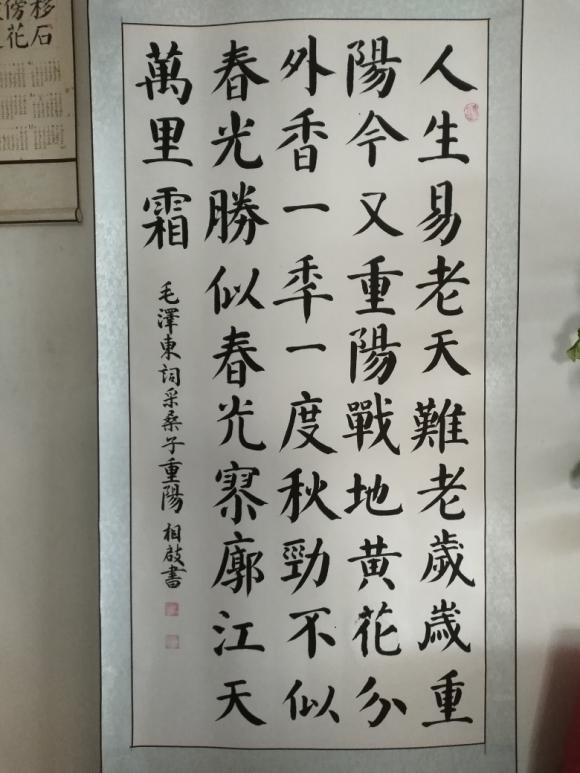 人生易老天難老歲歲重
陽今又重陽戰地黃花分
外香一秊一度秋勁不似
春光勝似春光寥廓江天
萬里霜
毛澤東詞采桑子重陽 相啟書
移石
傍花